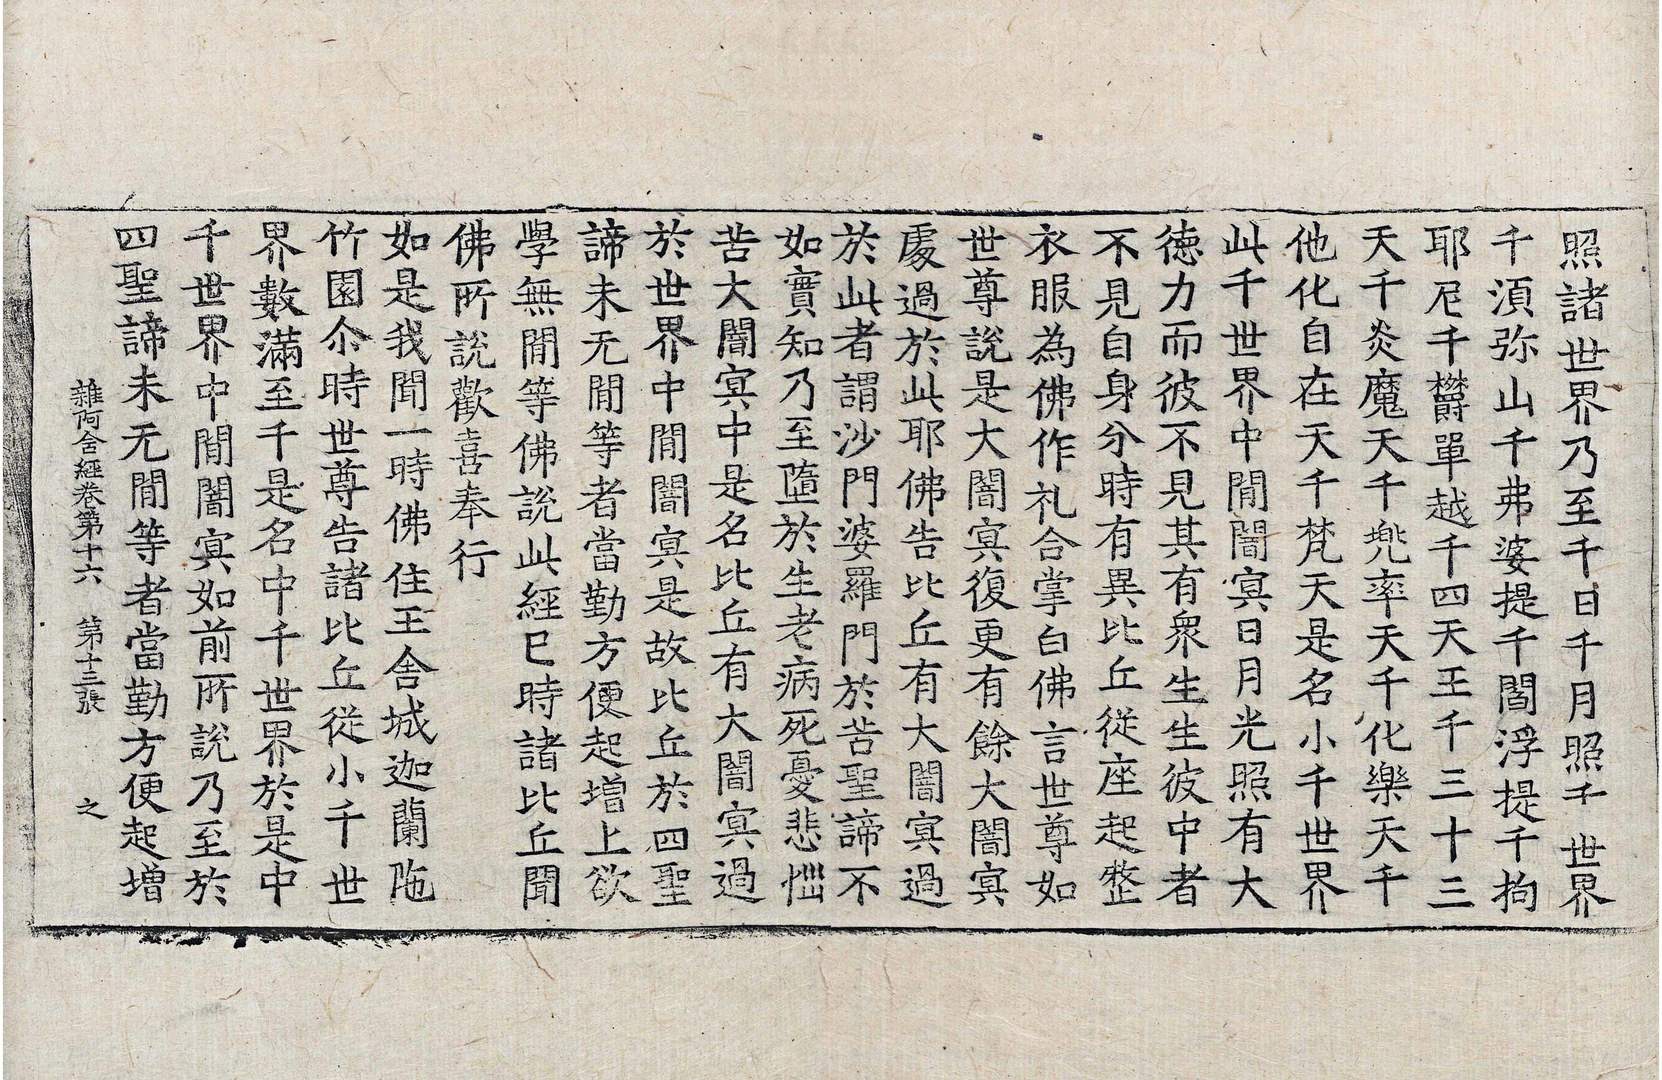 照諸世界乃至千日千月照千世界
千湏弥山千弗婆提千閻浮提千拘
耶尼千欝單越千四天王千三十三
天千炎魔天千兠率天千化樂天千
他化自在天千梵天是名小千世界
此千世界中閒闇㝠日月光照有大
德力而彼不見其有衆生生彼中者
不見自身分時有異比丘從座起整
衣服為佛作礼合掌白佛言世尊如
世尊說是大闇㝠復更有餘大闇㝠
處過於此耶佛告比丘有大闇㝠過
於此者謂沙門婆羅門於苦聖諦不
如實知乃至墮於生老病死憂悲惱
苦大闇㝠中是名比丘有大闇㝠過
於世界中閒闇㝠是故比丘於四聖
諦未无閒等者當勤方便起增上欲
學無閒等佛說此經已時諸比丘聞
佛所說歡喜奉行
如是我聞一時佛住王舍城迦蘭陁
竹園尒時世尊告諸比丘從小千世
界數滿至千是名中千世界於是中
千世界中閒闇㝠如前所說乃至於
四聖諦未无閒等者當勤方便起增
雜阿含經卷第十六 第十三張 之